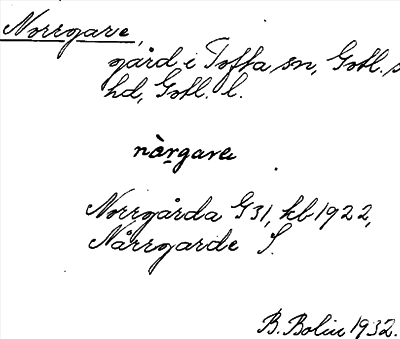 Norrgare,
gård i Tofta sn, Gotl. s
hd, Gotl. l.
nòrgare
Norrgårda G31, kb 1922,
Nårrgarde S.
B. Bolin 1932.